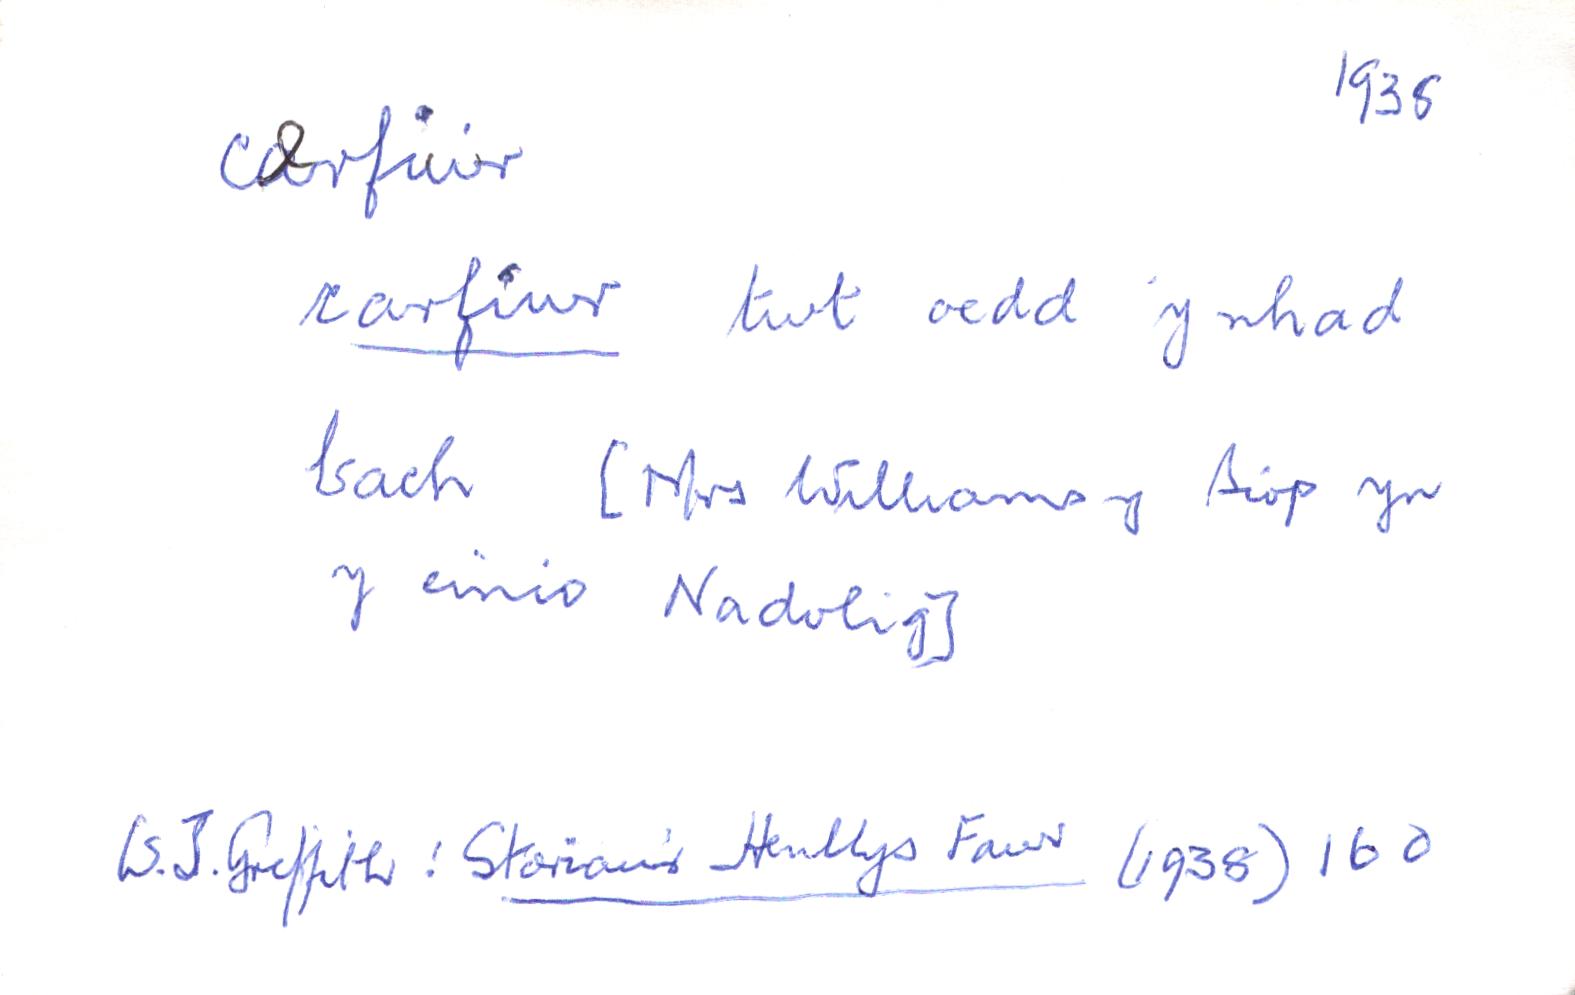 1938
cerfiwr
carfiwr twt oedd 'y nhad
bach [Mrs Williams y Siop yn
y cinio Nadolig]
W.J. Griffith: Storiau'r Henllys Fawr (1938) 160